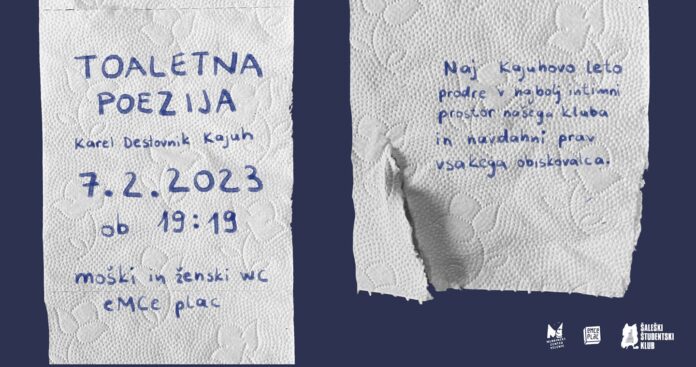 TOALETNA
POEZIJA
Karel Destovnik Kajuh
7.2.2023
ob 19:19
moški in ženski wc
eMCe plac
Naj Kajuhovo leto
prodre v najbolj intimni
prostor našega kluba
in navdahni prav
vsakega obiskovalca.
eMCe
PLAC
ŠALEŠKI
ŠTUDENTSKI
KLUB